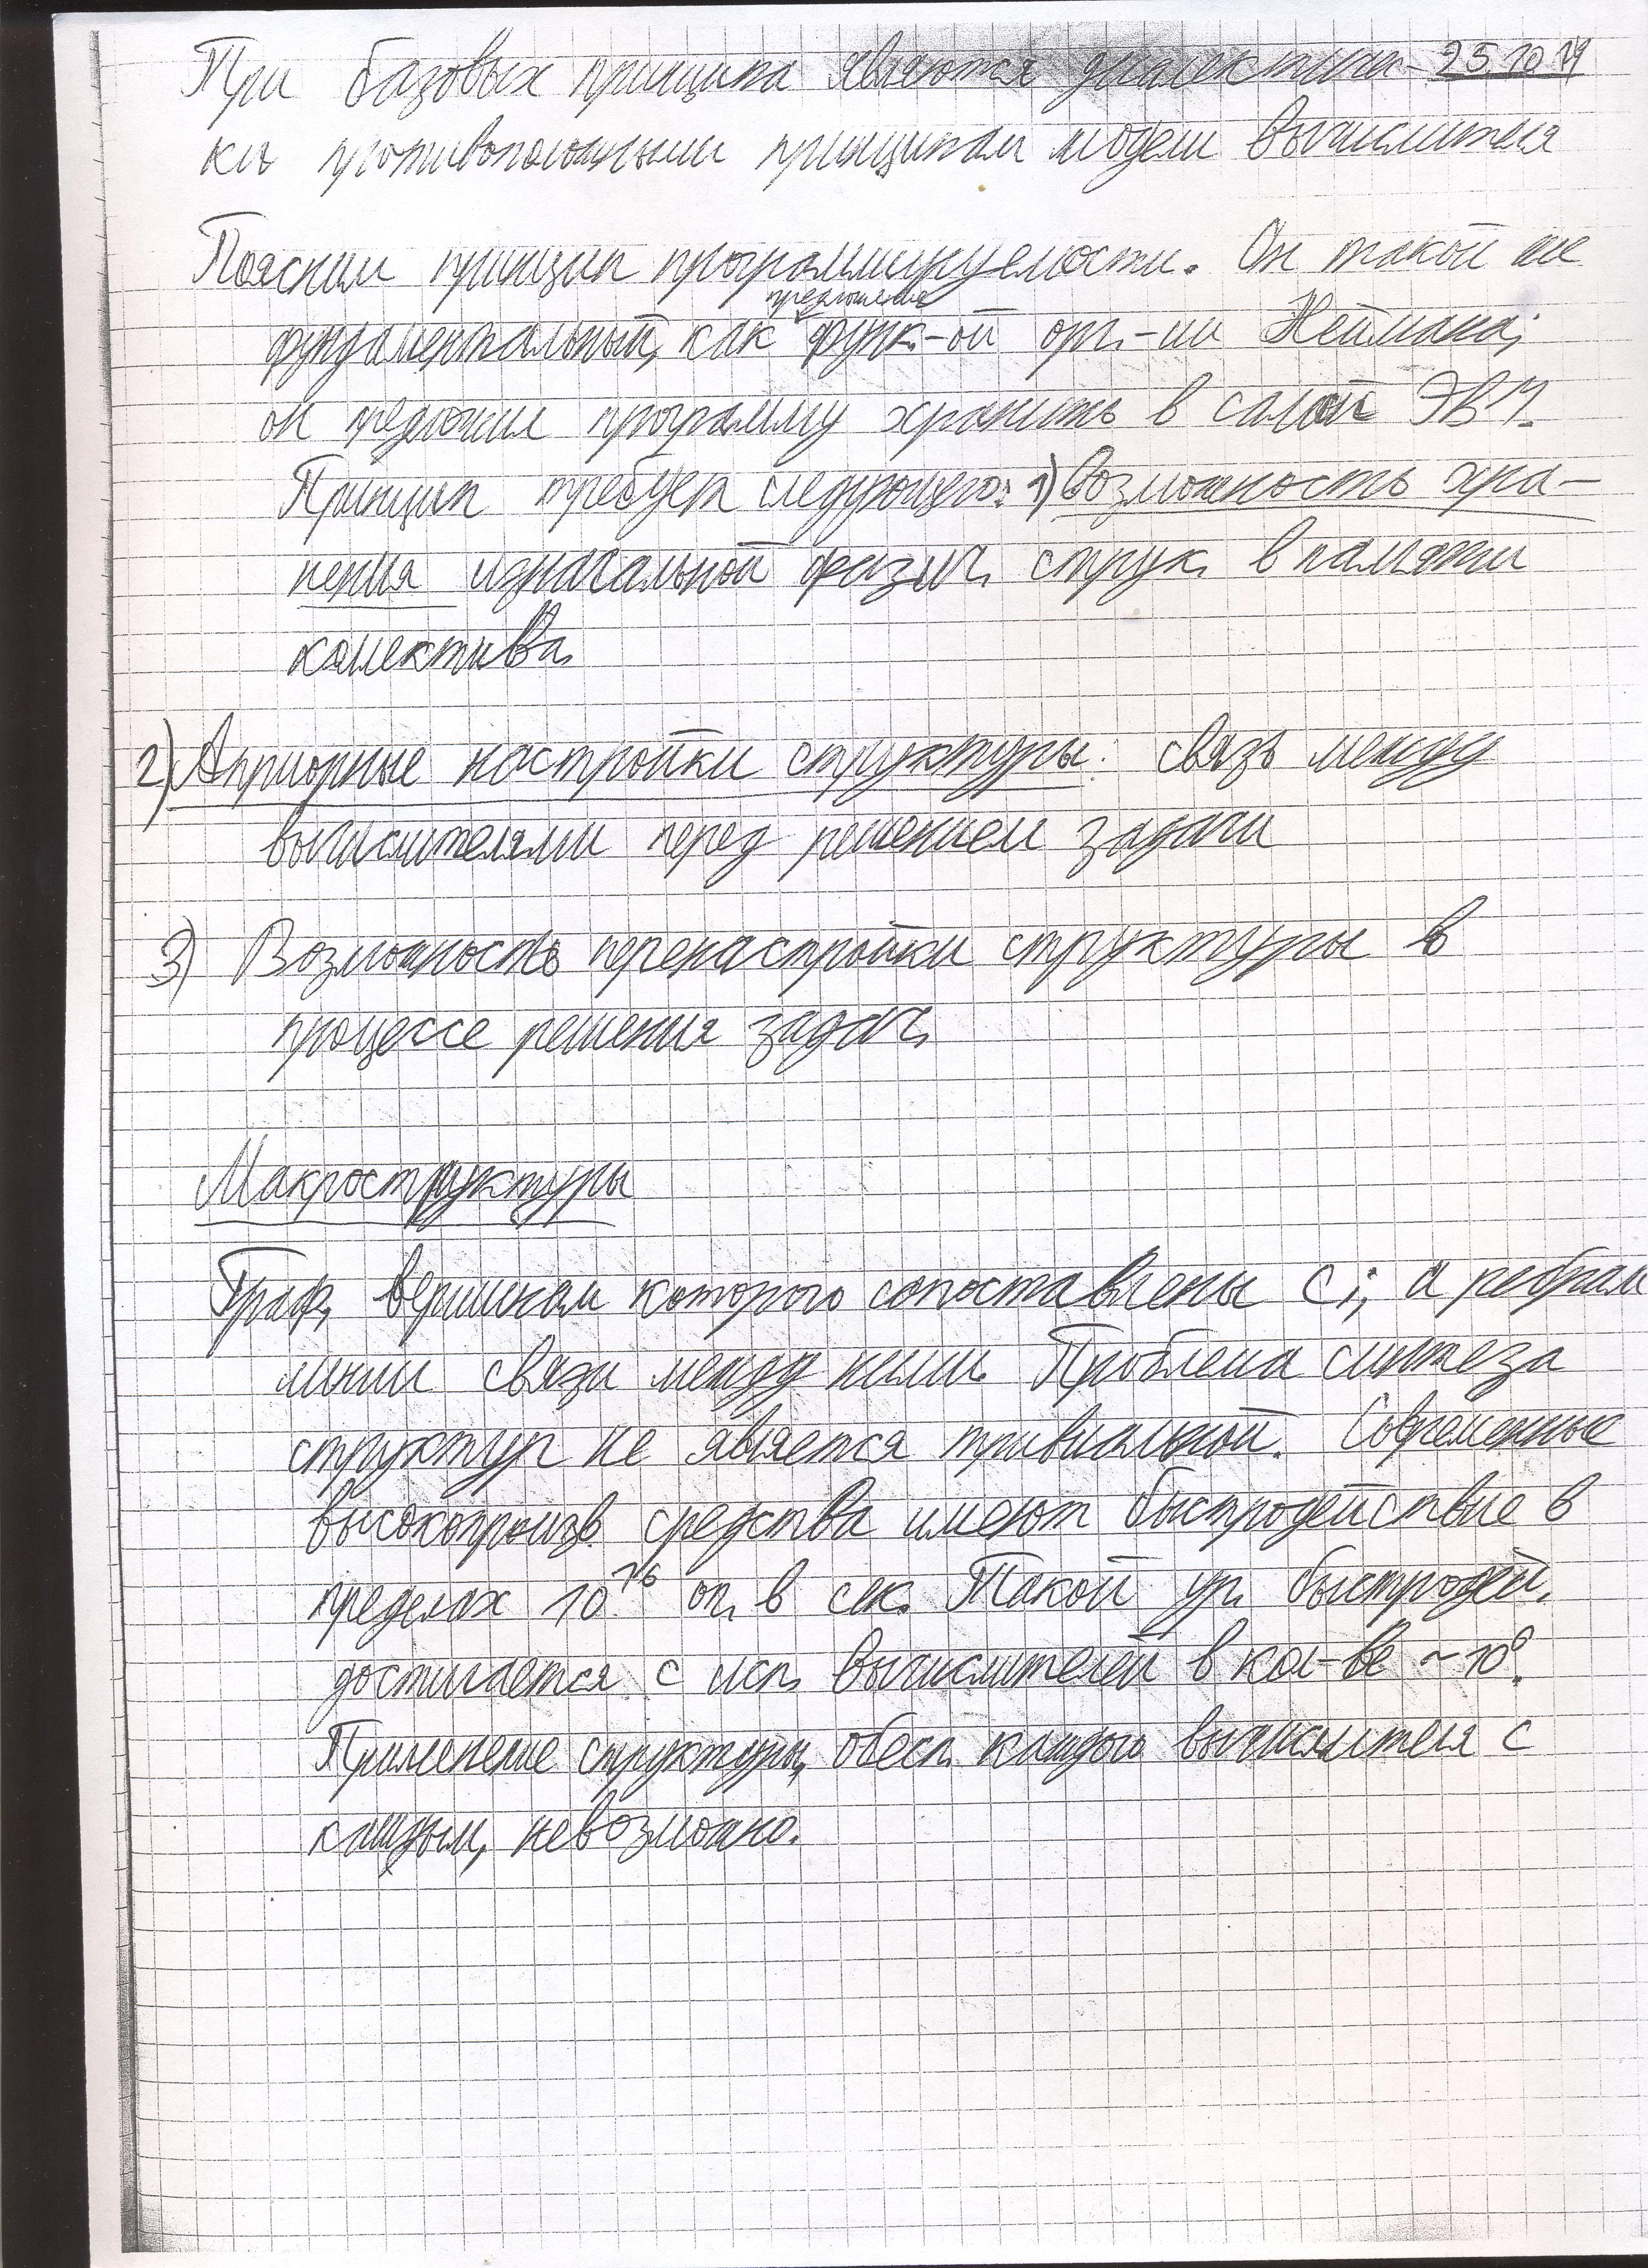 Три базовых принципа являются диалектичес- 25.10.19
ки противоположными принципам модели вычислителя
Поясним принцип программируемости. Он такой же
предложение
фундаментальный, как функ-ой орг-ии Неймана;
он предложил программу хранить в самой ЭВМ.
Принцип требует следующего: 1) Возможность хра-
нения изначальной физич. струк. в памяти
коллектива.
2) Априорные настройки структуры: связь между
вычислителями перед решением задачи
3) Возможность перенастройки структуры в
процессе решения задач.
Макроструктуры
Граф, вершинам которого сопоставлены Ci, а ребрам
линии связи между ними. Проблема синтеза
структур не является тривиальной. Современные
высокопроизв. средства имеют быстродействие в
пределах 10^16 оп. в сек. Такой ур. быстродей.
достигается с исп. вычислителей в кол-ве ~10
Применение структуры, обесп. каждого вычислителя с
каждым, невозможно.